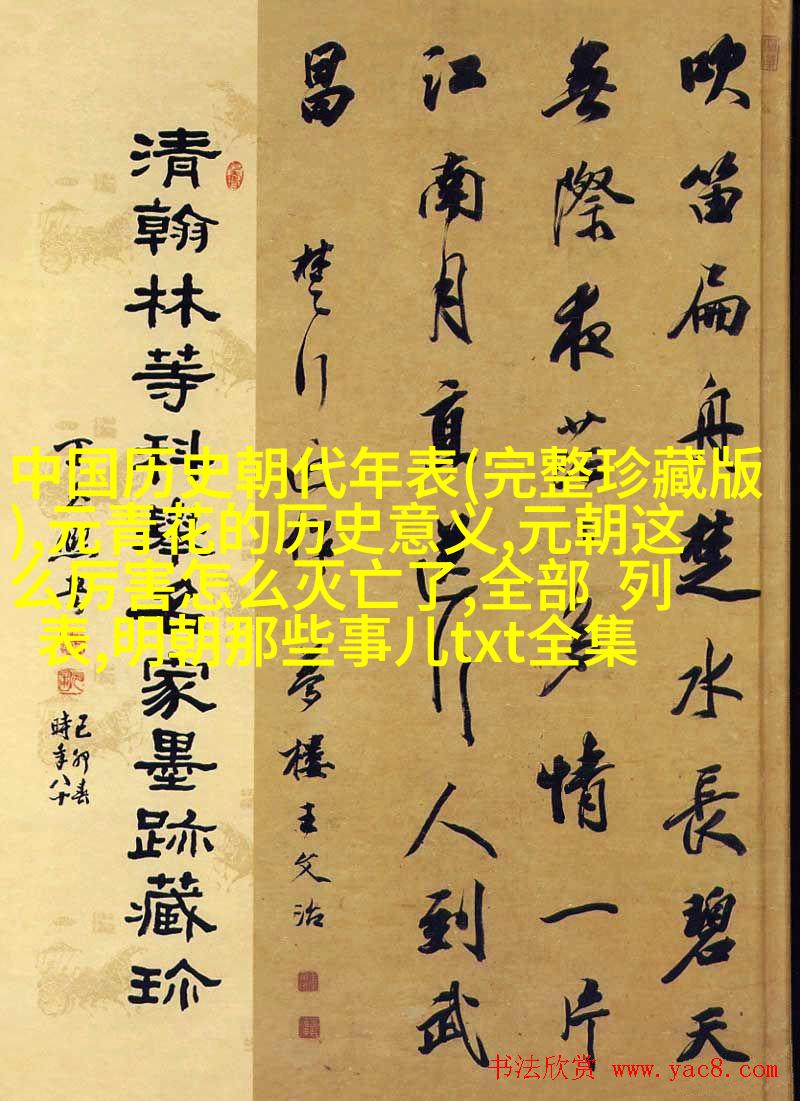 吹笛扁舟楚水長碧天
無際夜蒼多情一片
江南月直送行人到武
昌
楚行口占 夢樓王文治
清翰林等科舉名家墨跡藏珍
己卯春
時年八十
中国历史朝代年表(完整珍藏版
),元青花的历史意义,元朝这
么厉害怎么灭亡了,全部 列
表,明朝那些事儿txt全集
书法欣赏 www.yac8.com